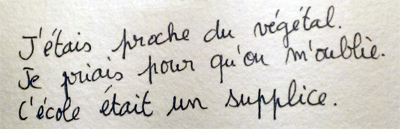 J'étais proche du végétal.
Je priais pour qu'on m'oublie.
L'école était un supplice.